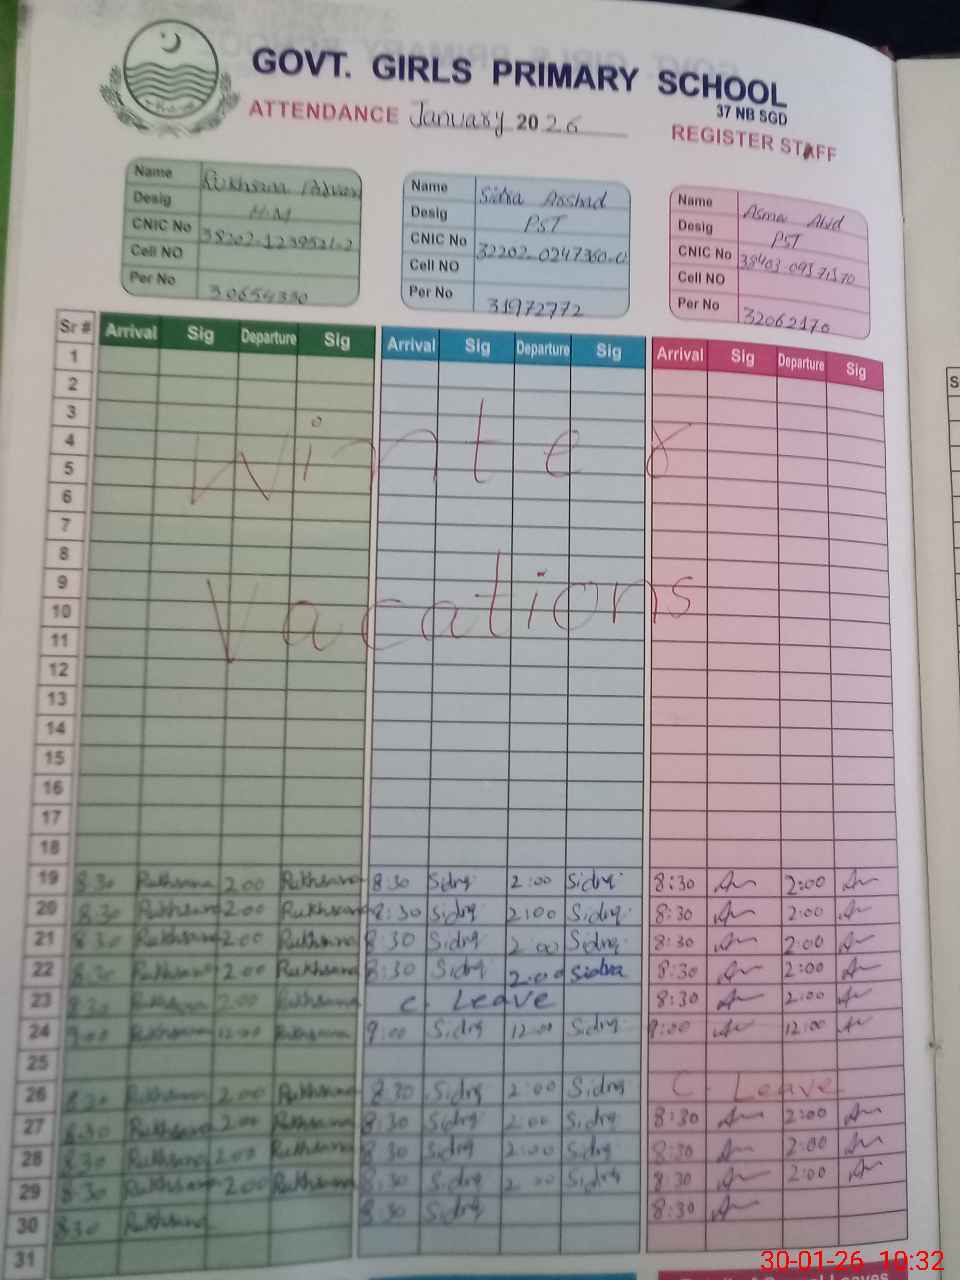 GOVT. GIRLS PRIMARY SCHOOL
37 NB SGD
ATTENDANCE January 2026
REGISTER STAFF
Name Rukhsana Parveen
Desig H.M
CNIC No 38202-1239521-2
Cell NO
Per No 30654330
Name Sidra Arshad
Desig PST
CNIC No 32202-0247360-0
Cell NO
Per No 31972772
Name Asma Abid
Desig PST
CNIC No
Cell NO
Per No 32062170
Sr # Arrival Sig Departure Sig Arrival Sig Departure Sig Arrival Sig Departure Sig
1
2
3
4
5
6
7
8
9
10
11
12
13
14
15
16
17
18
Winter
Vacations
19 8:30 Rukhsana 2:00 Rukhsana 8:30 Sidra 2:00 Sidra 8:30 2:00
20 8:30 Rukhsana 2:00 Rukhsana 8:30 Sidra 2:00 Sidra 8:30 2:00
21 8:30 Rukhsana 2:00 Rukhsana 8:30 Sidra 2:00 Sidra 8:30 2:00
22 8:30 Rukhsana 2:00 Rukhsana 8:30 Sidra 2:00 Sidra 8:30 2:00
23 8:30 Rukhsana 2:00 Rukhsana C. Leave 8:30 2:00
24 9:00 Rukhsana 12:00 Rukhsana 9:00 Sidra 12:00 Sidra 9:00 12:00
25
26 8:30 Rukhsana 2:00 Rukhsana 8:30 Sidra 2:00 Sidra C. Leave
27 8:30 Rukhsana 2:00 Rukhsana 8:30 Sidra 2:00 Sidra 8:30 2:00
28 8:30 Rukhsana 2:00 Rukhsana 8:30 Sidra 2:00 Sidra 8:30 2:00
29 8:30 Rukhsana 2:00 Rukhsana 8:30 Sidra 2:00 Sidra 8:30 2:00
30 8:30 Rukhsana 8:30 Sidra 8:30
31
30-01-26 10:32